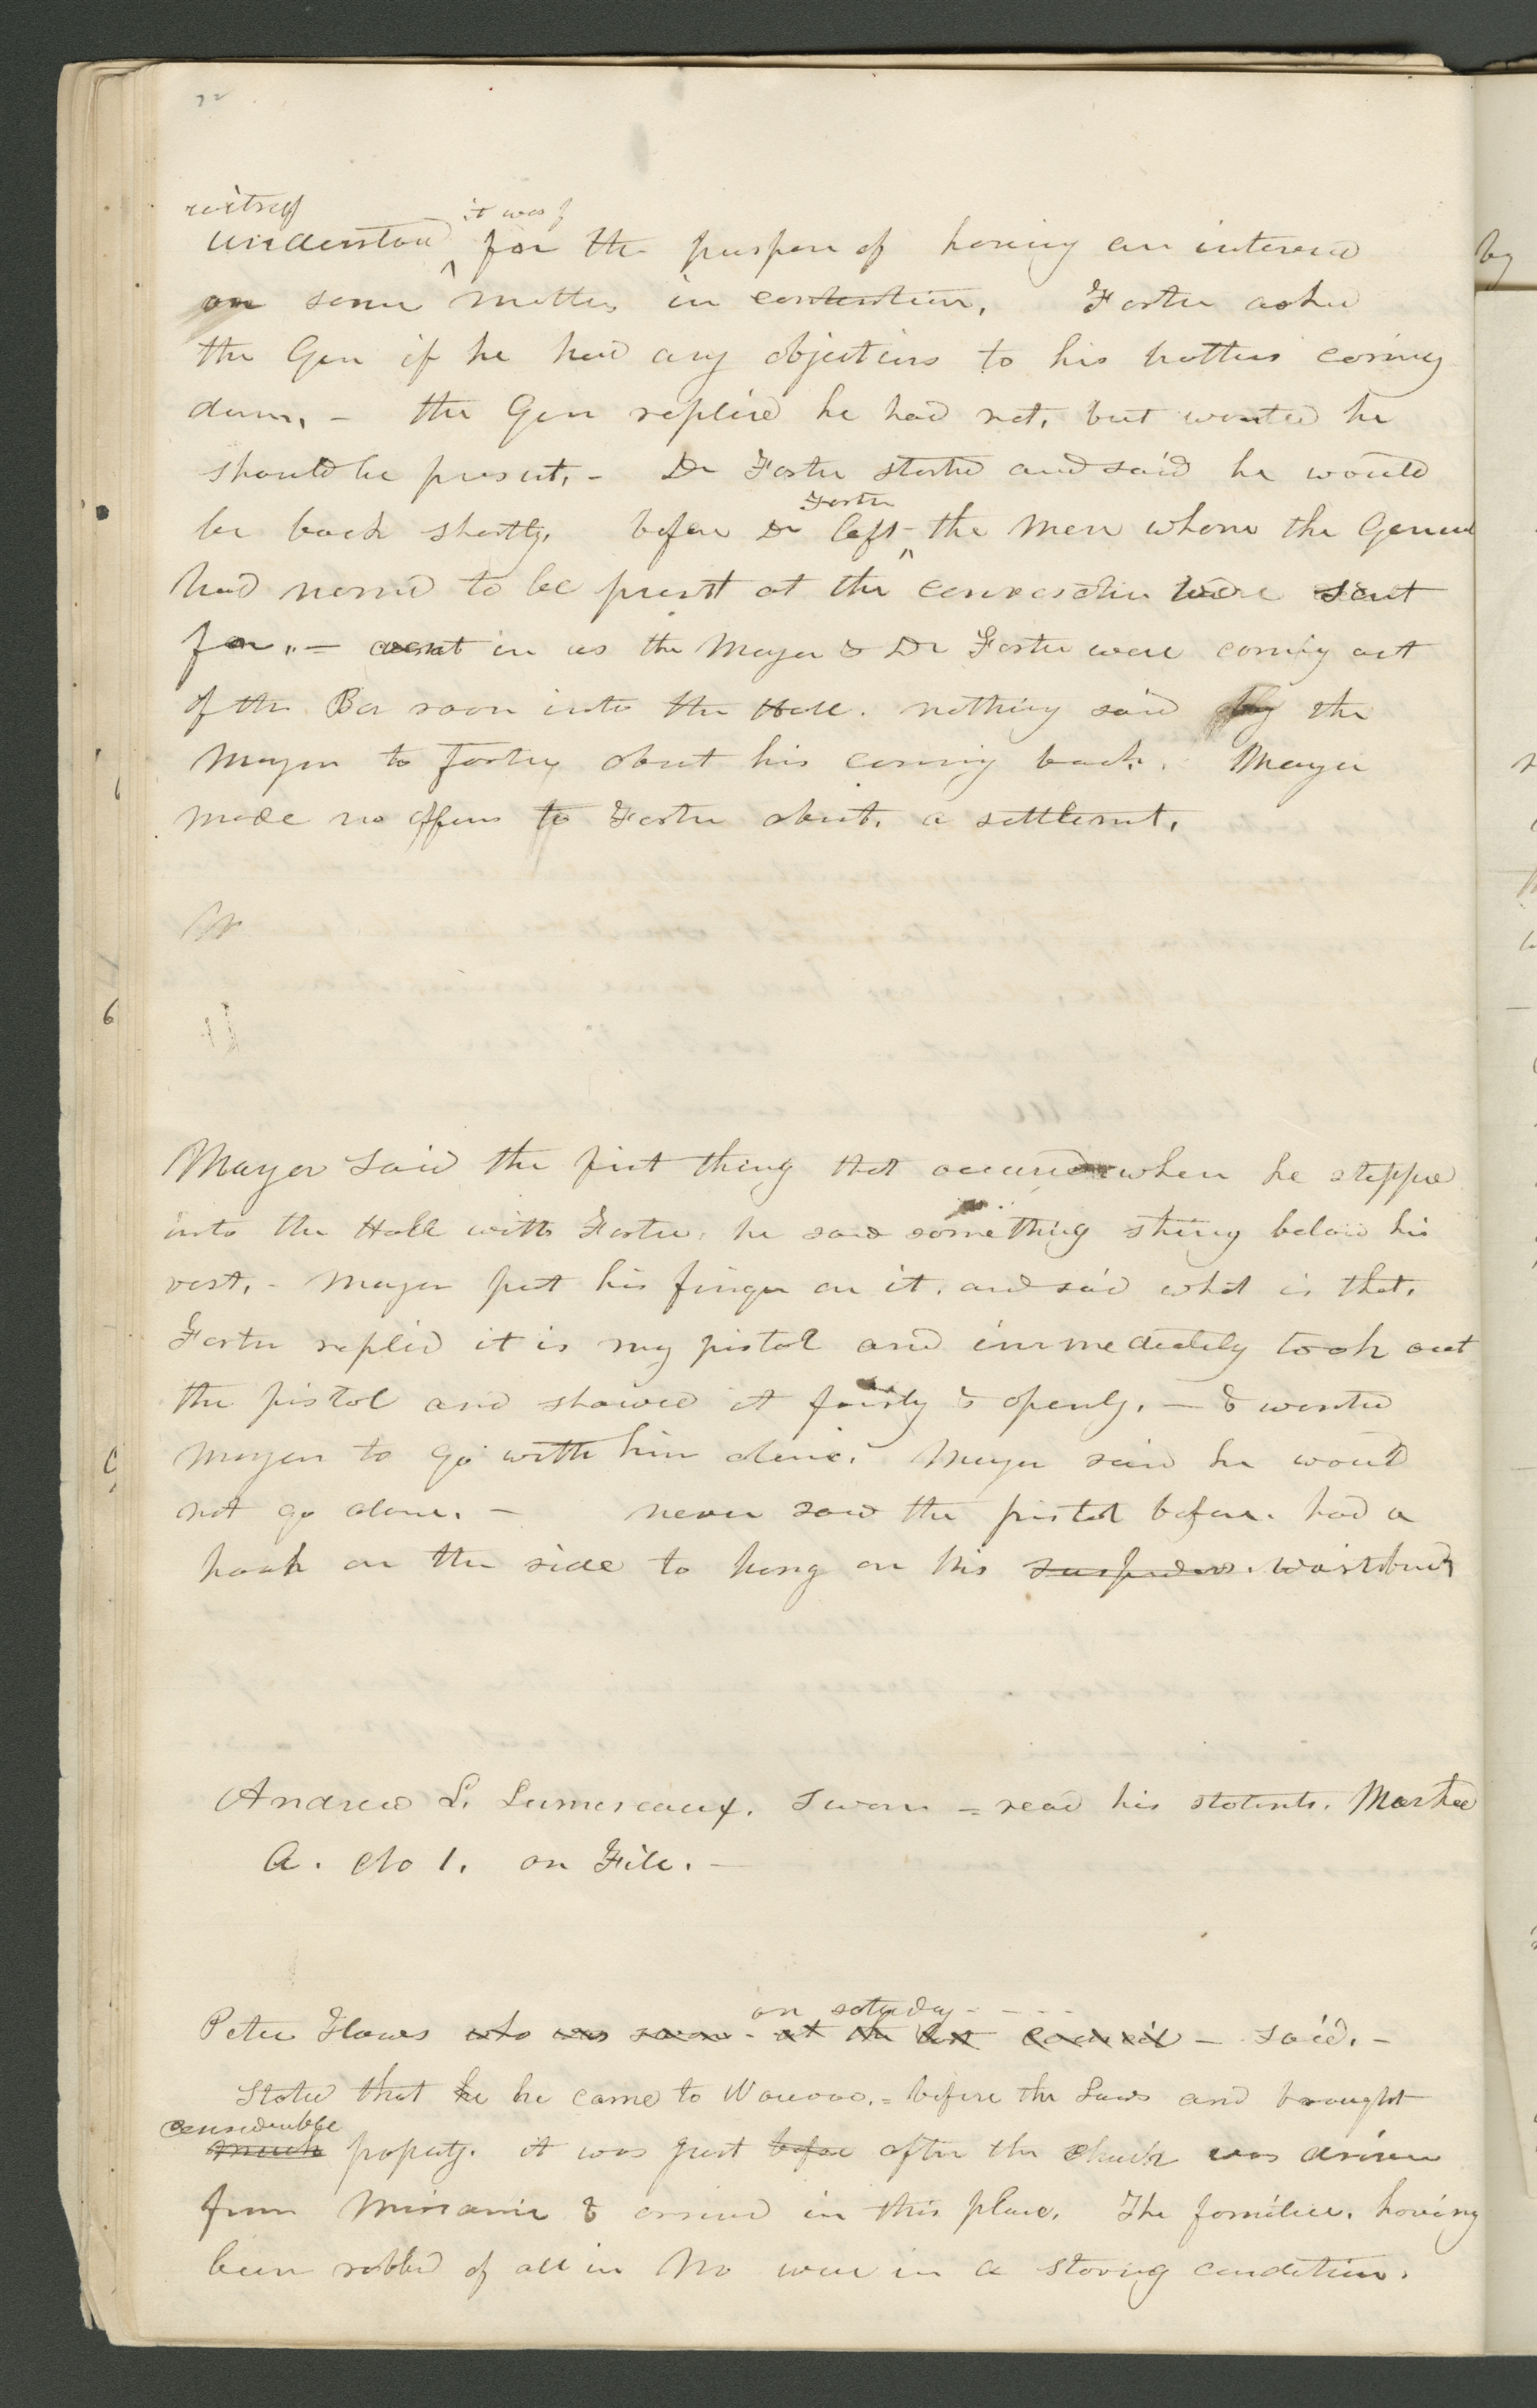 witness it was
understood for the purpose of having an interview
on some matters in contention. Foster asked
the Gen if he had any objections to his brothers coming
down, - the Gen replied he had not, but wanted he
should be present. - Dr Foster started and said he would
Foster
be back shortly. before Dr left - the men whom the General
had named to be present at the conversation were sent
for. - went in as the Mayor & Dr Foster were coming out
of the Bar room into the Hall. nothing said by the
Mayor to Foster about his coming back. Mayor
made no offers to Foster about a settlement.
Mayor said the first thing that occurred when he stepped
into the Hall with Foster, he saw something shiny below his
vest. - Mayor put his finger on it, and said what is that.
Foster replied it is my pistol and immediately took out
the pistol and showed it fairly & openly. - & wanted
Mayor to go with him alone. Mayor said he would
not go alone. - never saw the pistol before. had a
hook on the side to hang on his suspenders. waistband
Andrew L. Lamereaux. Sworn = read his statements. Marked
A. No 1. on File. -
on saturday - - - -
Peter Hawes who was sworn at the last council - said. -
Stated that he he came to Nauvoo. = before the Laws and brought
considerable
much property. it was just before after the church was driven
from Missouri & arrived in this place. The families. having
been robbed of all in Mo were in a starving condition.